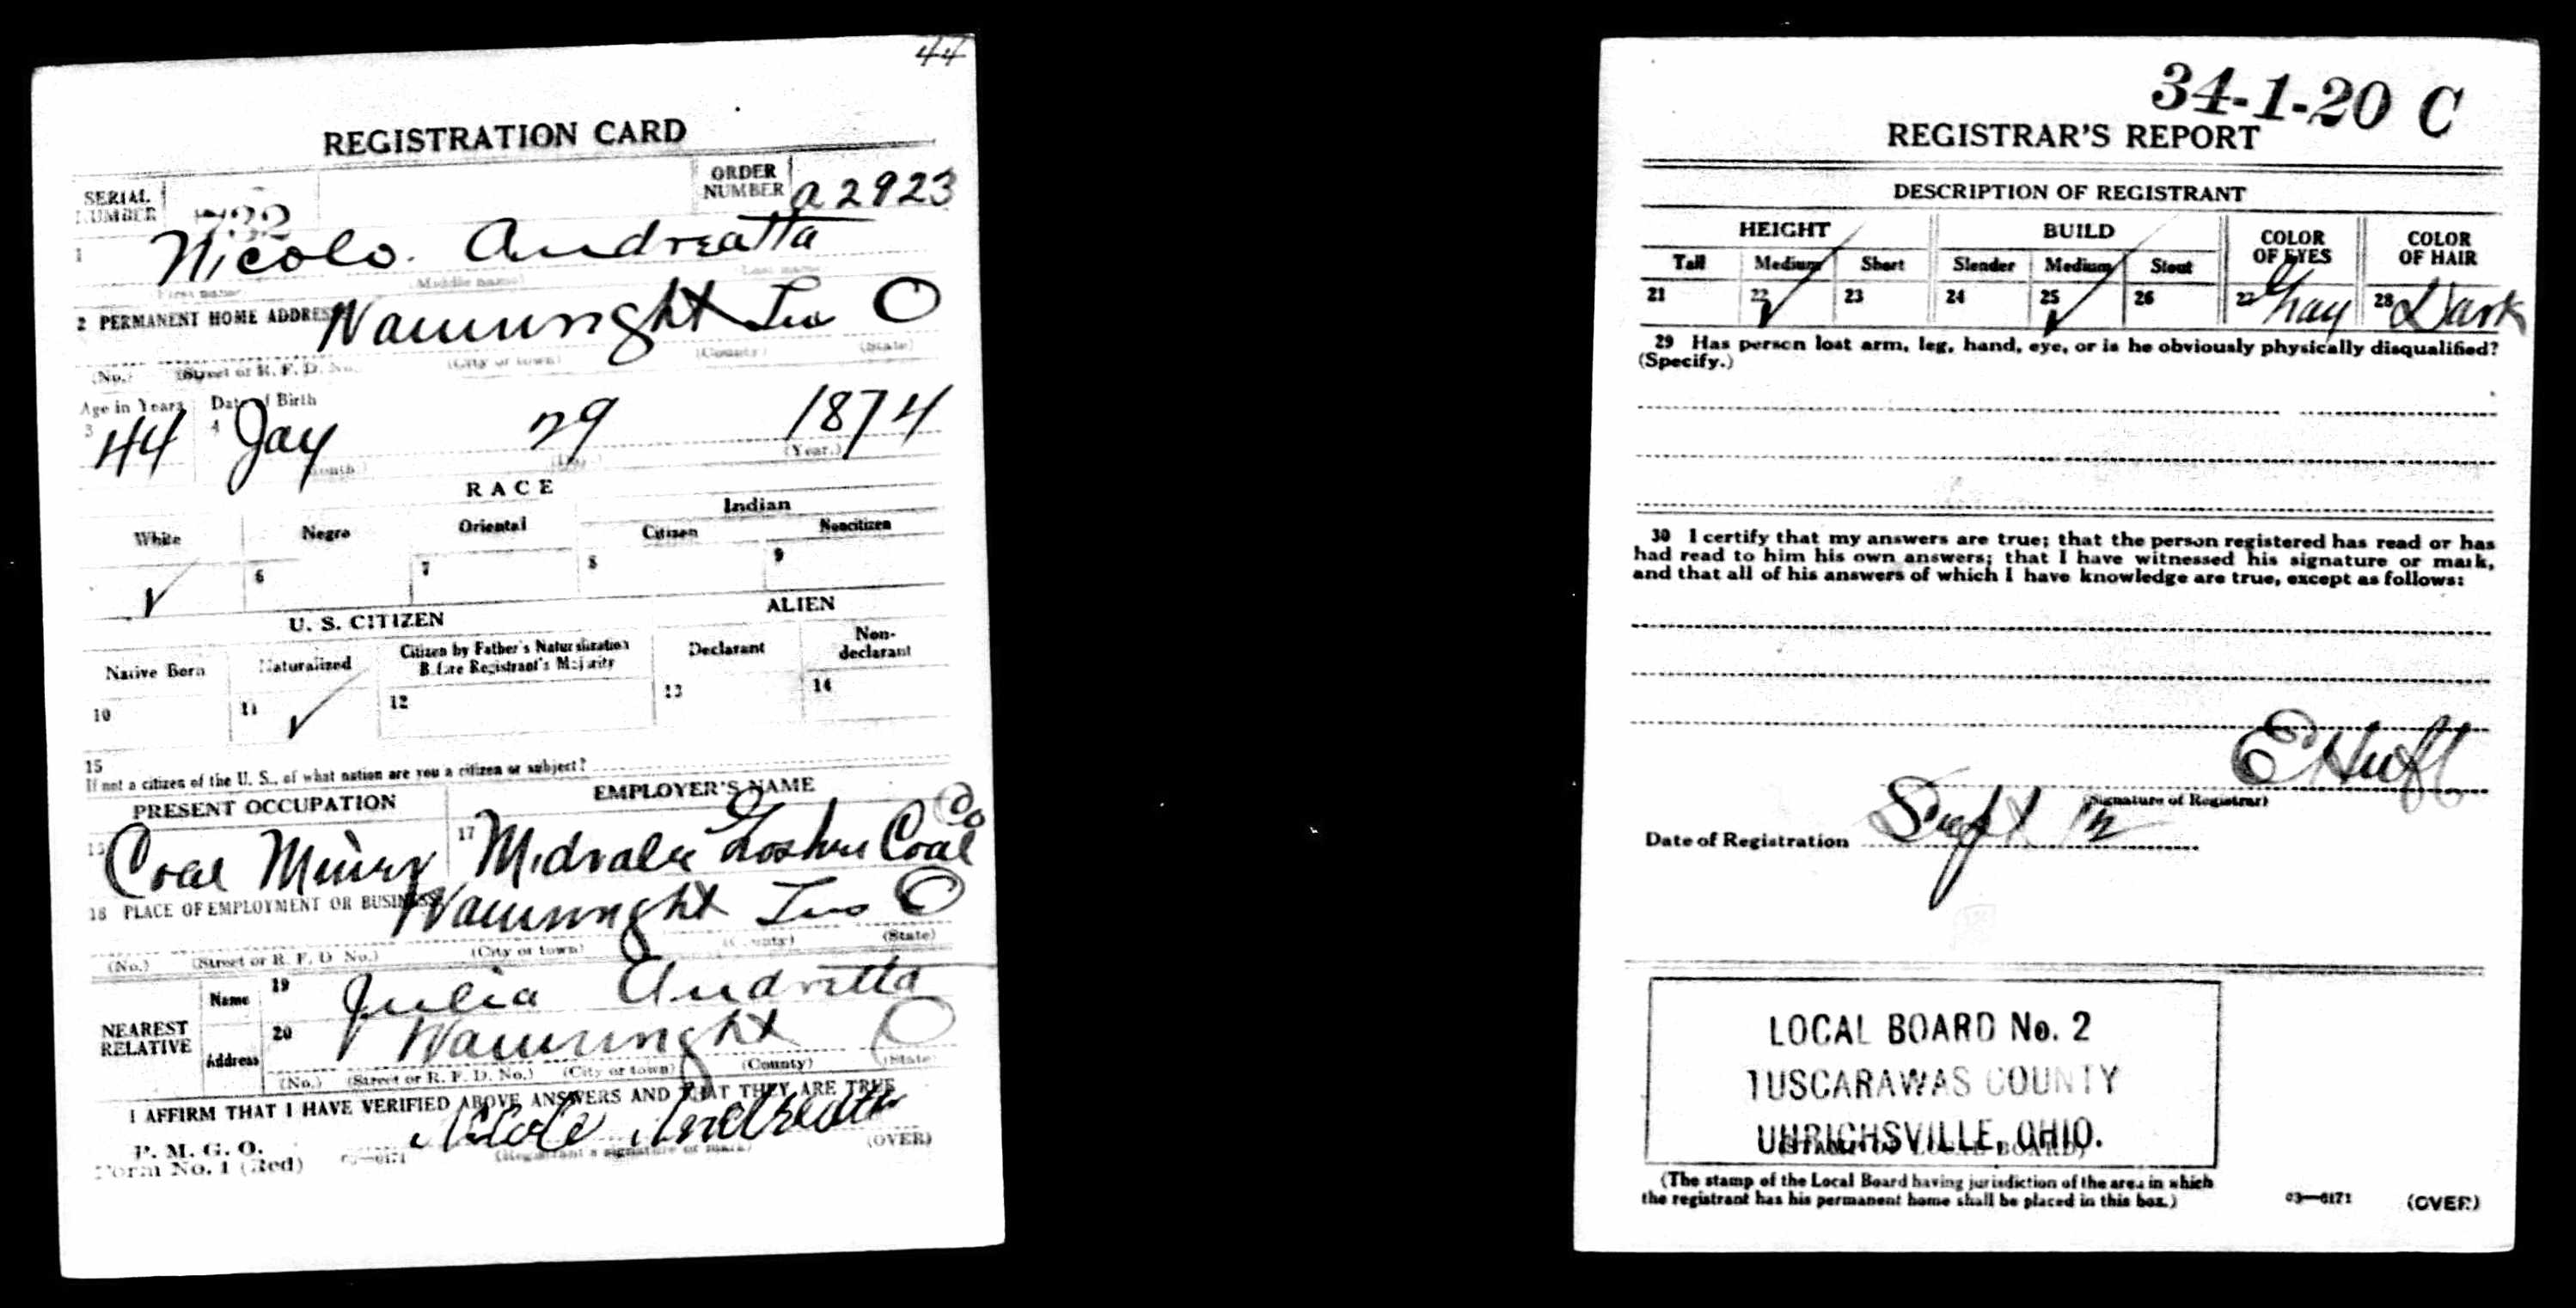 44
REGISTRATION CARD
SERIAL NUMBER 732 ORDER NUMBER a2923
1 Nicolo. Andreatta
(First name) (Middle name) Last name
2 PERMANENT HOME ADDRESS Wainwright Tus O
(No.) (Street or R. F. D. No.) (City or town) (County) (State)
Age in Years Date of Birth
3 44 4 Jay 29 1874
(Month.) (Day.) (Year.)
RACE
White Negro Oriental Indian
Citizen Noncitizen
6 7 8 9
U. S. CITIZEN ALIEN
Native Born Naturalized Citizen by Father's Naturalization Before Registrant's Majority Declarant Non-declarant
10 11 12 13 14
15
If not a citizen of the U. S., of what nation are you a citizen or subject?
PRESENT OCCUPATION EMPLOYER'S NAME
Co
Coal Miner 17 Midvale Goshen Coal
18 PLACE OF EMPLOYMENT OR BUSINESS Wainwright Tus O
(No.) (Street or R. F. D. No.) (City or town) (County) (State)
NEAREST RELATIVE Name 19 Julia Andretta
Address 20 Wainwright O
(No.) (Street or R. F. D. No.) (City or town) (County) (State)
I AFFIRM THAT I HAVE VERIFIED ABOVE ANSWERS AND THAT THEY ARE TRUE
P. M. G. O.
Form No. 1 (Red) 03—6171 Nicolo Andreatta (OVER)
(Registrant's signature or mark)
34-1-20 C
REGISTRAR'S REPORT
DESCRIPTION OF REGISTRANT
HEIGHT BUILD COLOR OF EYES COLOR OF HAIR
Tall Medium Short Slender Medium Stout
21 22 23 24 25 26 27 Gray 28 Dark
29 Has person lost arm, leg, hand, eye, or is he obviously physically disqualified?
(Specify.)
30 I certify that my answers are true; that the person registered has read or has
had read to him his own answers; that I have witnessed his signature or mark,
and that all of his answers of which I have knowledge are true, except as follows:
E Huff
(Signature of Registrar)
Date of Registration Sept 12
LOCAL BOARD No. 2
TUSCARAWAS COUNTY
UHRICHSVILLE, OHIO.
(STAMP OF LOCAL BOARD)
(The stamp of the Local Board having jurisdiction of the area in which
the registrant has his permanent home shall be placed in this box.)
03—6171 (OVER)